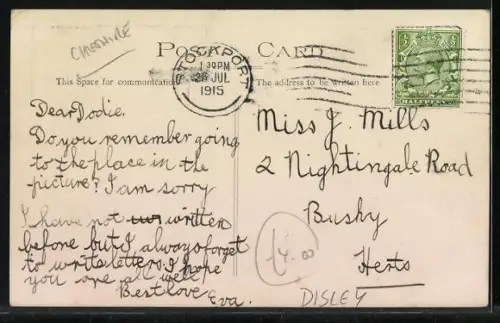 CHESHIRE
POST CARD
This Space for communication
The address to be written here
STOCKPORT
1.30PM
26 JUL
1915
HALFPENNY
Dear Dodie.
Do you remember going
to the place in the
picture? I am sorry
I have not written
before but I always forget
to write letters. I hope
you are all well
Best love
Eva.
Miss J. Mills
2 Nightingale Road
Bushy
Herts
£4.00
DISLEY